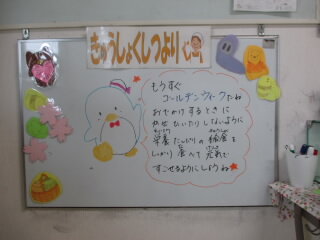 きゅうしょくしつより
もうすぐ
ゴールデンウィークだね
おでかけするときに
かぜひいたりしないように
栄養たっぷりの給食を
しっかり食べて元気で
すごせるようにしようね